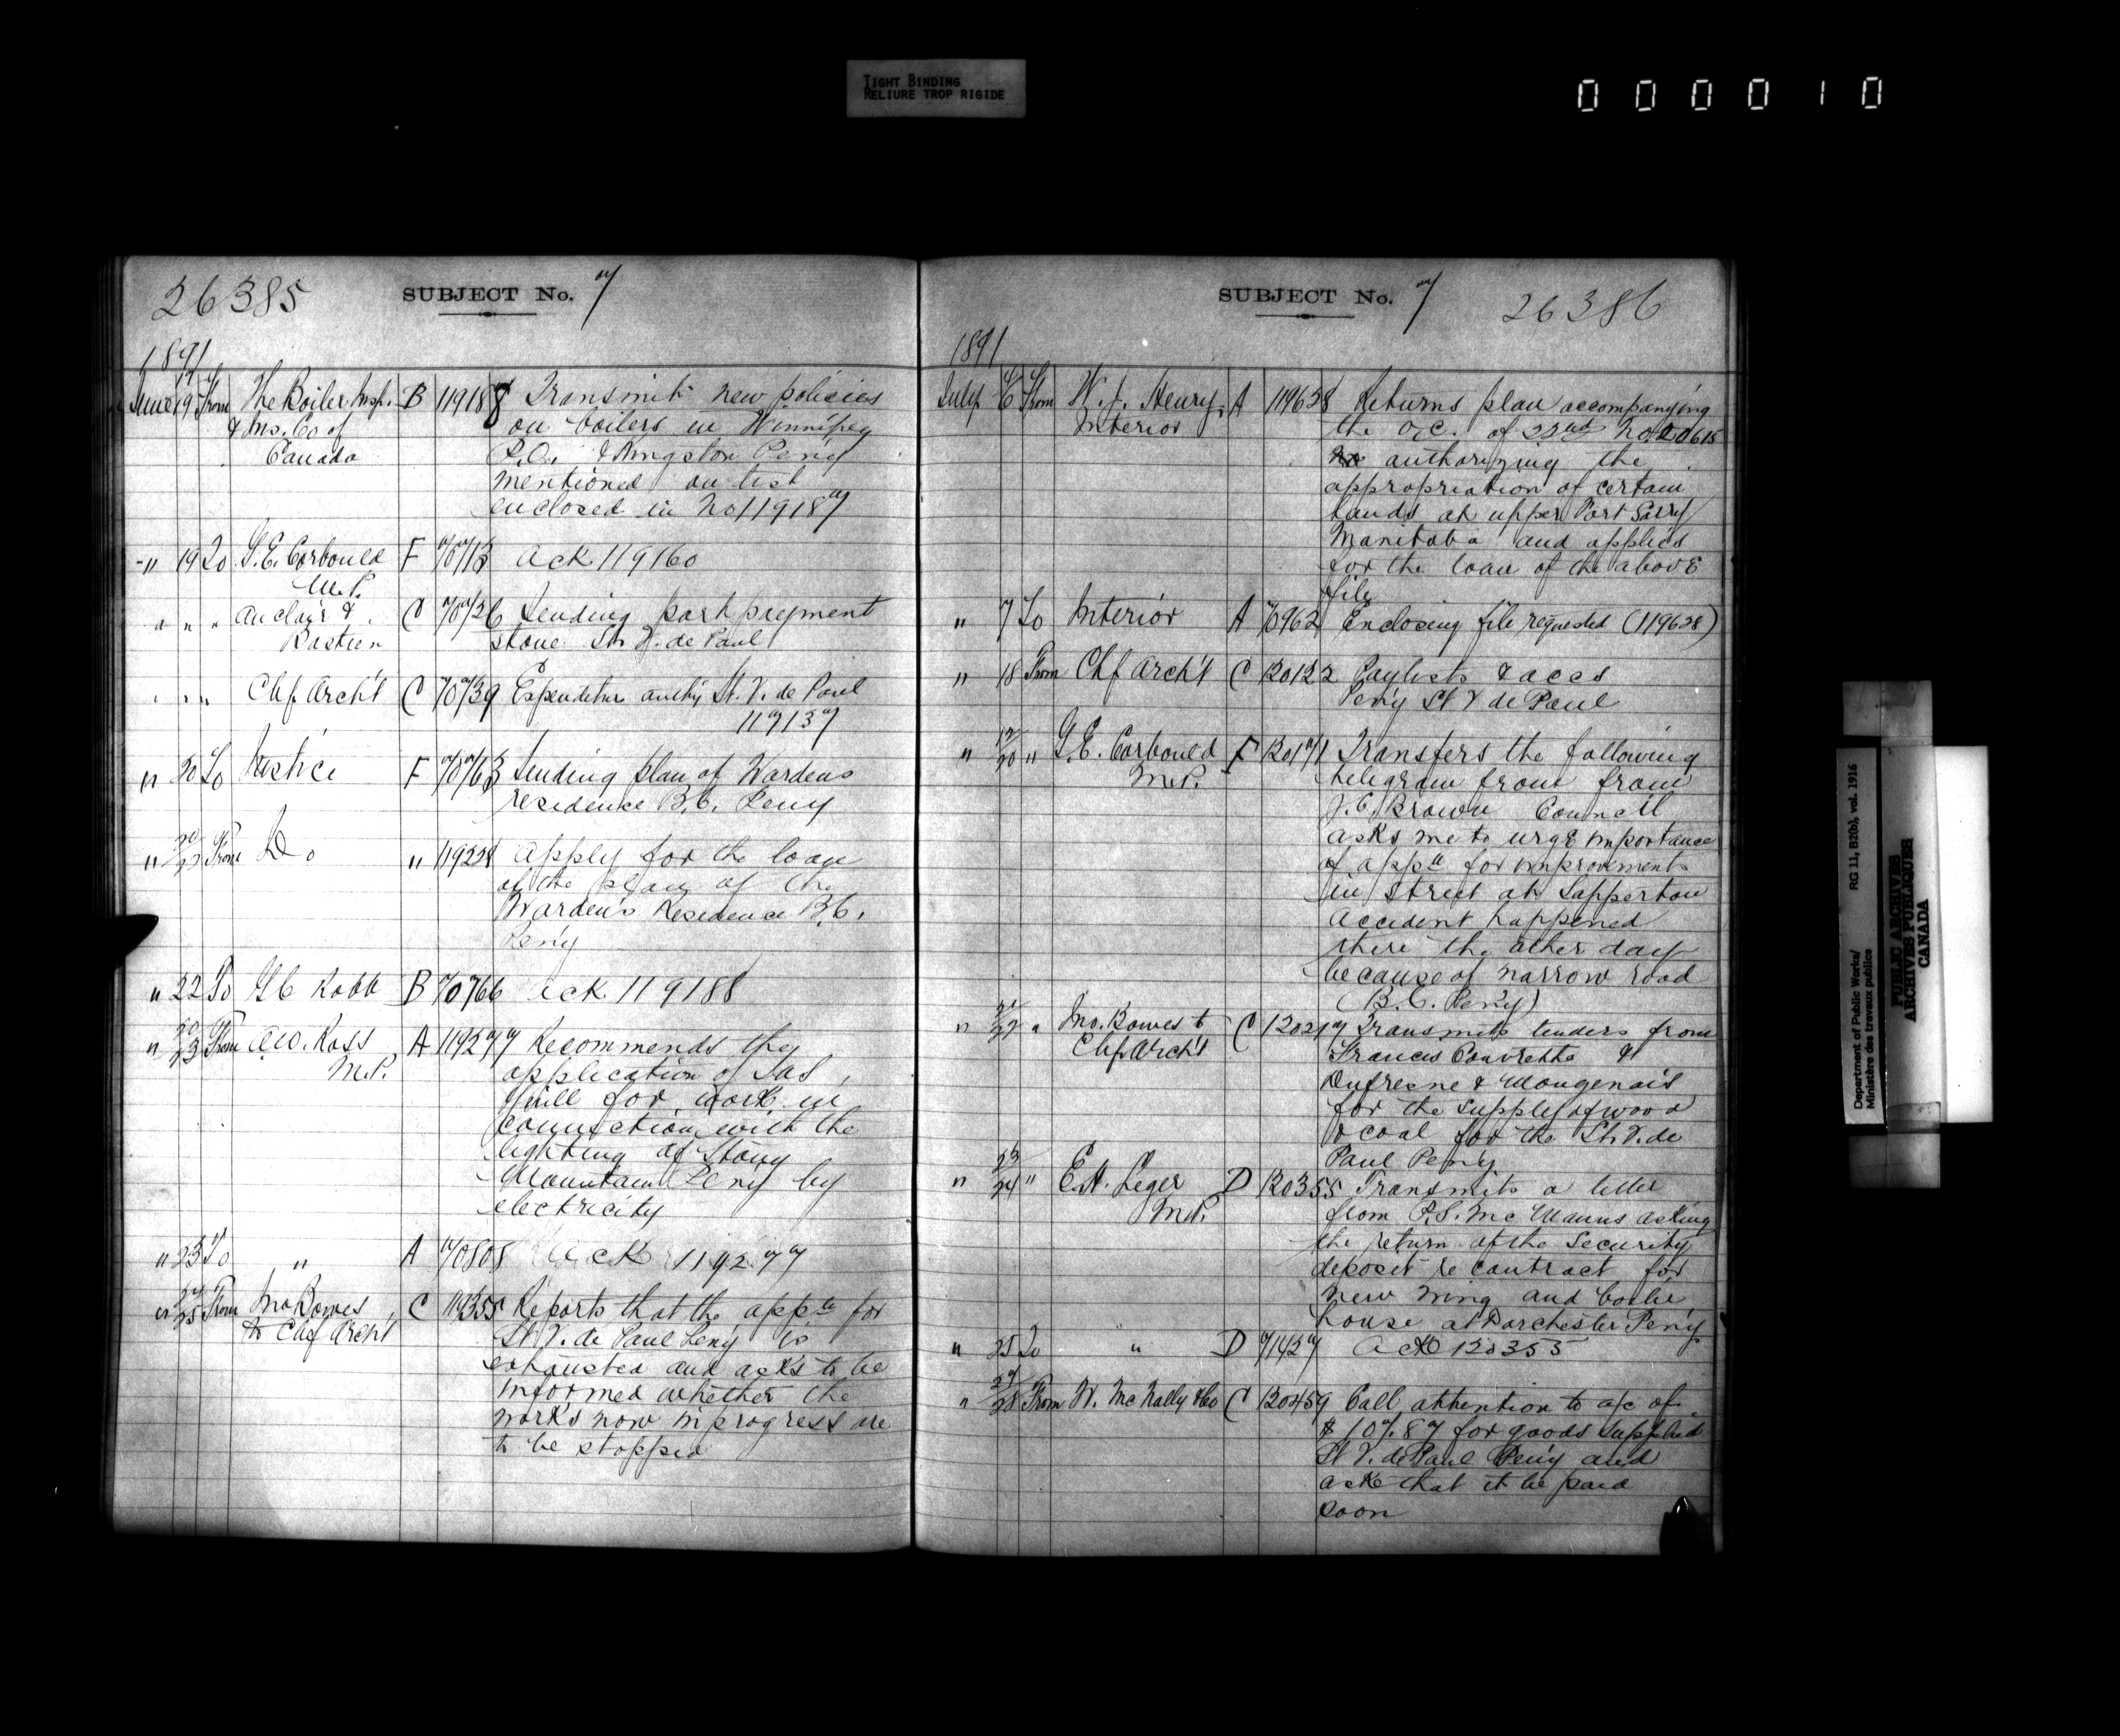 TIGHT BINDING
RELIURE TROP RIGIDE
000010
26385
SUBJECT No. 7
1891
June 19 From The Boiler Insp. B 119188 Transmit new policies
& Ins. Co of on boilers in Winnipeg
Canada P.O. & Kingston Peny
mentioned on list
enclosed in No 119187
" 19 To G. E. Corbould F 70713 Ack 119160
M.P.
" " " Auclair & C 70726 Sending part payment
Bastien stone St. V. de Paul
" " " Chf Archt C 70739 Expenditure authy St. V. de Paul
119137
" 20 To Justice F 70763 Sending plan of Wardens
residence B.C. Peny
" 20/22 From Do " 119228 Apply for the loan
of the plan of the
Warden's Residence B.C.
Peny
" 22 To G C Robb B 70766 Ack 119188
" 20/23 From A.W. Ross A 119277 Recommends the
M.P. application of Jas
for work in
connection with the
lighting of Stony
Mountain Peny by
electricity
" 23 To " A 70808 Ack 119277
" 24/25 From Jno Bowes C 119355 Reports that the appn for
to Chf Archt St V. de Paul Peny is
exhausted and asks to be
informed whether the
works now in progress are
to be stopped
SUBJECT No. 7
26386
1891
July 6 From W. J. Henry A 119628 Returns plan accompanying
Interior the O.C. of 22nd No. 20615
authorizing the
appropriation of certain
lands at upper Fort Garry
Manitoba and applies
for the loan of the above
file
" 7 To Interior A 70962 Enclosing file requested (119628)
" 18 From Chf Archt C 120122 Paylists & accs
Peny St V de Paul
" 12/20 " G. E. Corbould F 120171 Transfers the following
M.P. telegram from from
J. C. Brown Council
asks me to urge importance
of appn for improvements
in Street at Sapperton
accident happened
there the other day
because of narrow road
(B.C. Peny)
" 21/22 " Jno. Bowes to C 120217 Transmits tenders from
Chf Archt Francis Couvrette &
Dufresne & Mongenais
for the supply of wood
& coal for the St. V. de
Paul Peny
" 23/24 " E. H. Leger D 120355 Transmits a letter
M.P. from P. S. McManus asking
the return of the security
deposit re contract for
new wing and boiler
house at Dorchester Peny
" 25 To " D 71427 Ack 120355
" 27/28 From W. McNally & Co C 120459 Call attention to a/c of
$107.87 for goods supplied
St V. de Paul Peny and
ask that it be paid
soon
Department of Public Works/
Ministère des travaux publics
RG 11, B2(b), vol. 1916
PUBLIC ARCHIVES
ARCHIVES PUBLIQUES
CANADA